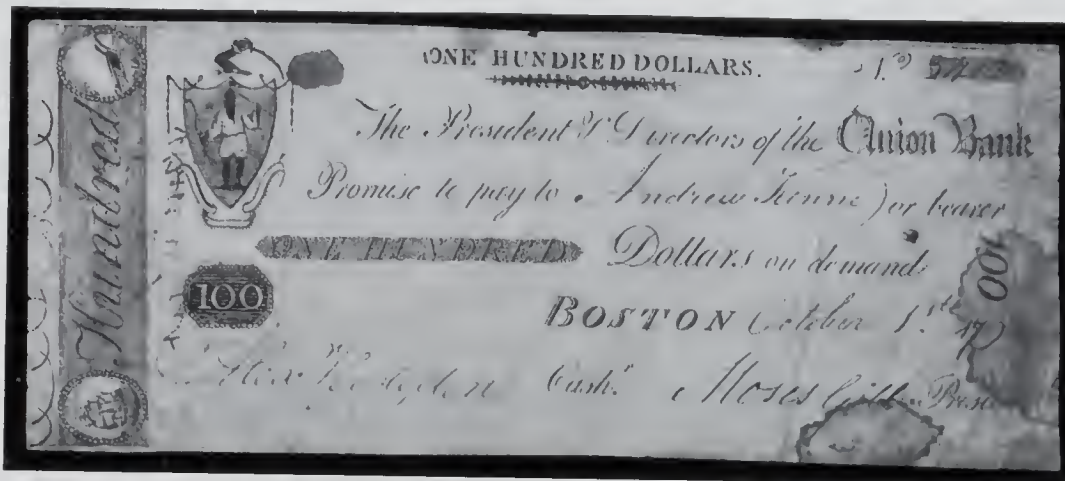 Hundred
ONE HUNDRED DOLLARS.
The President & Directors of the Union Bank
Promise to pay to Andrew or bearer
ONE HUNDRED Dollars on demand
100
100
BOSTON October 1.st
Cash.r Moses Gill Presi